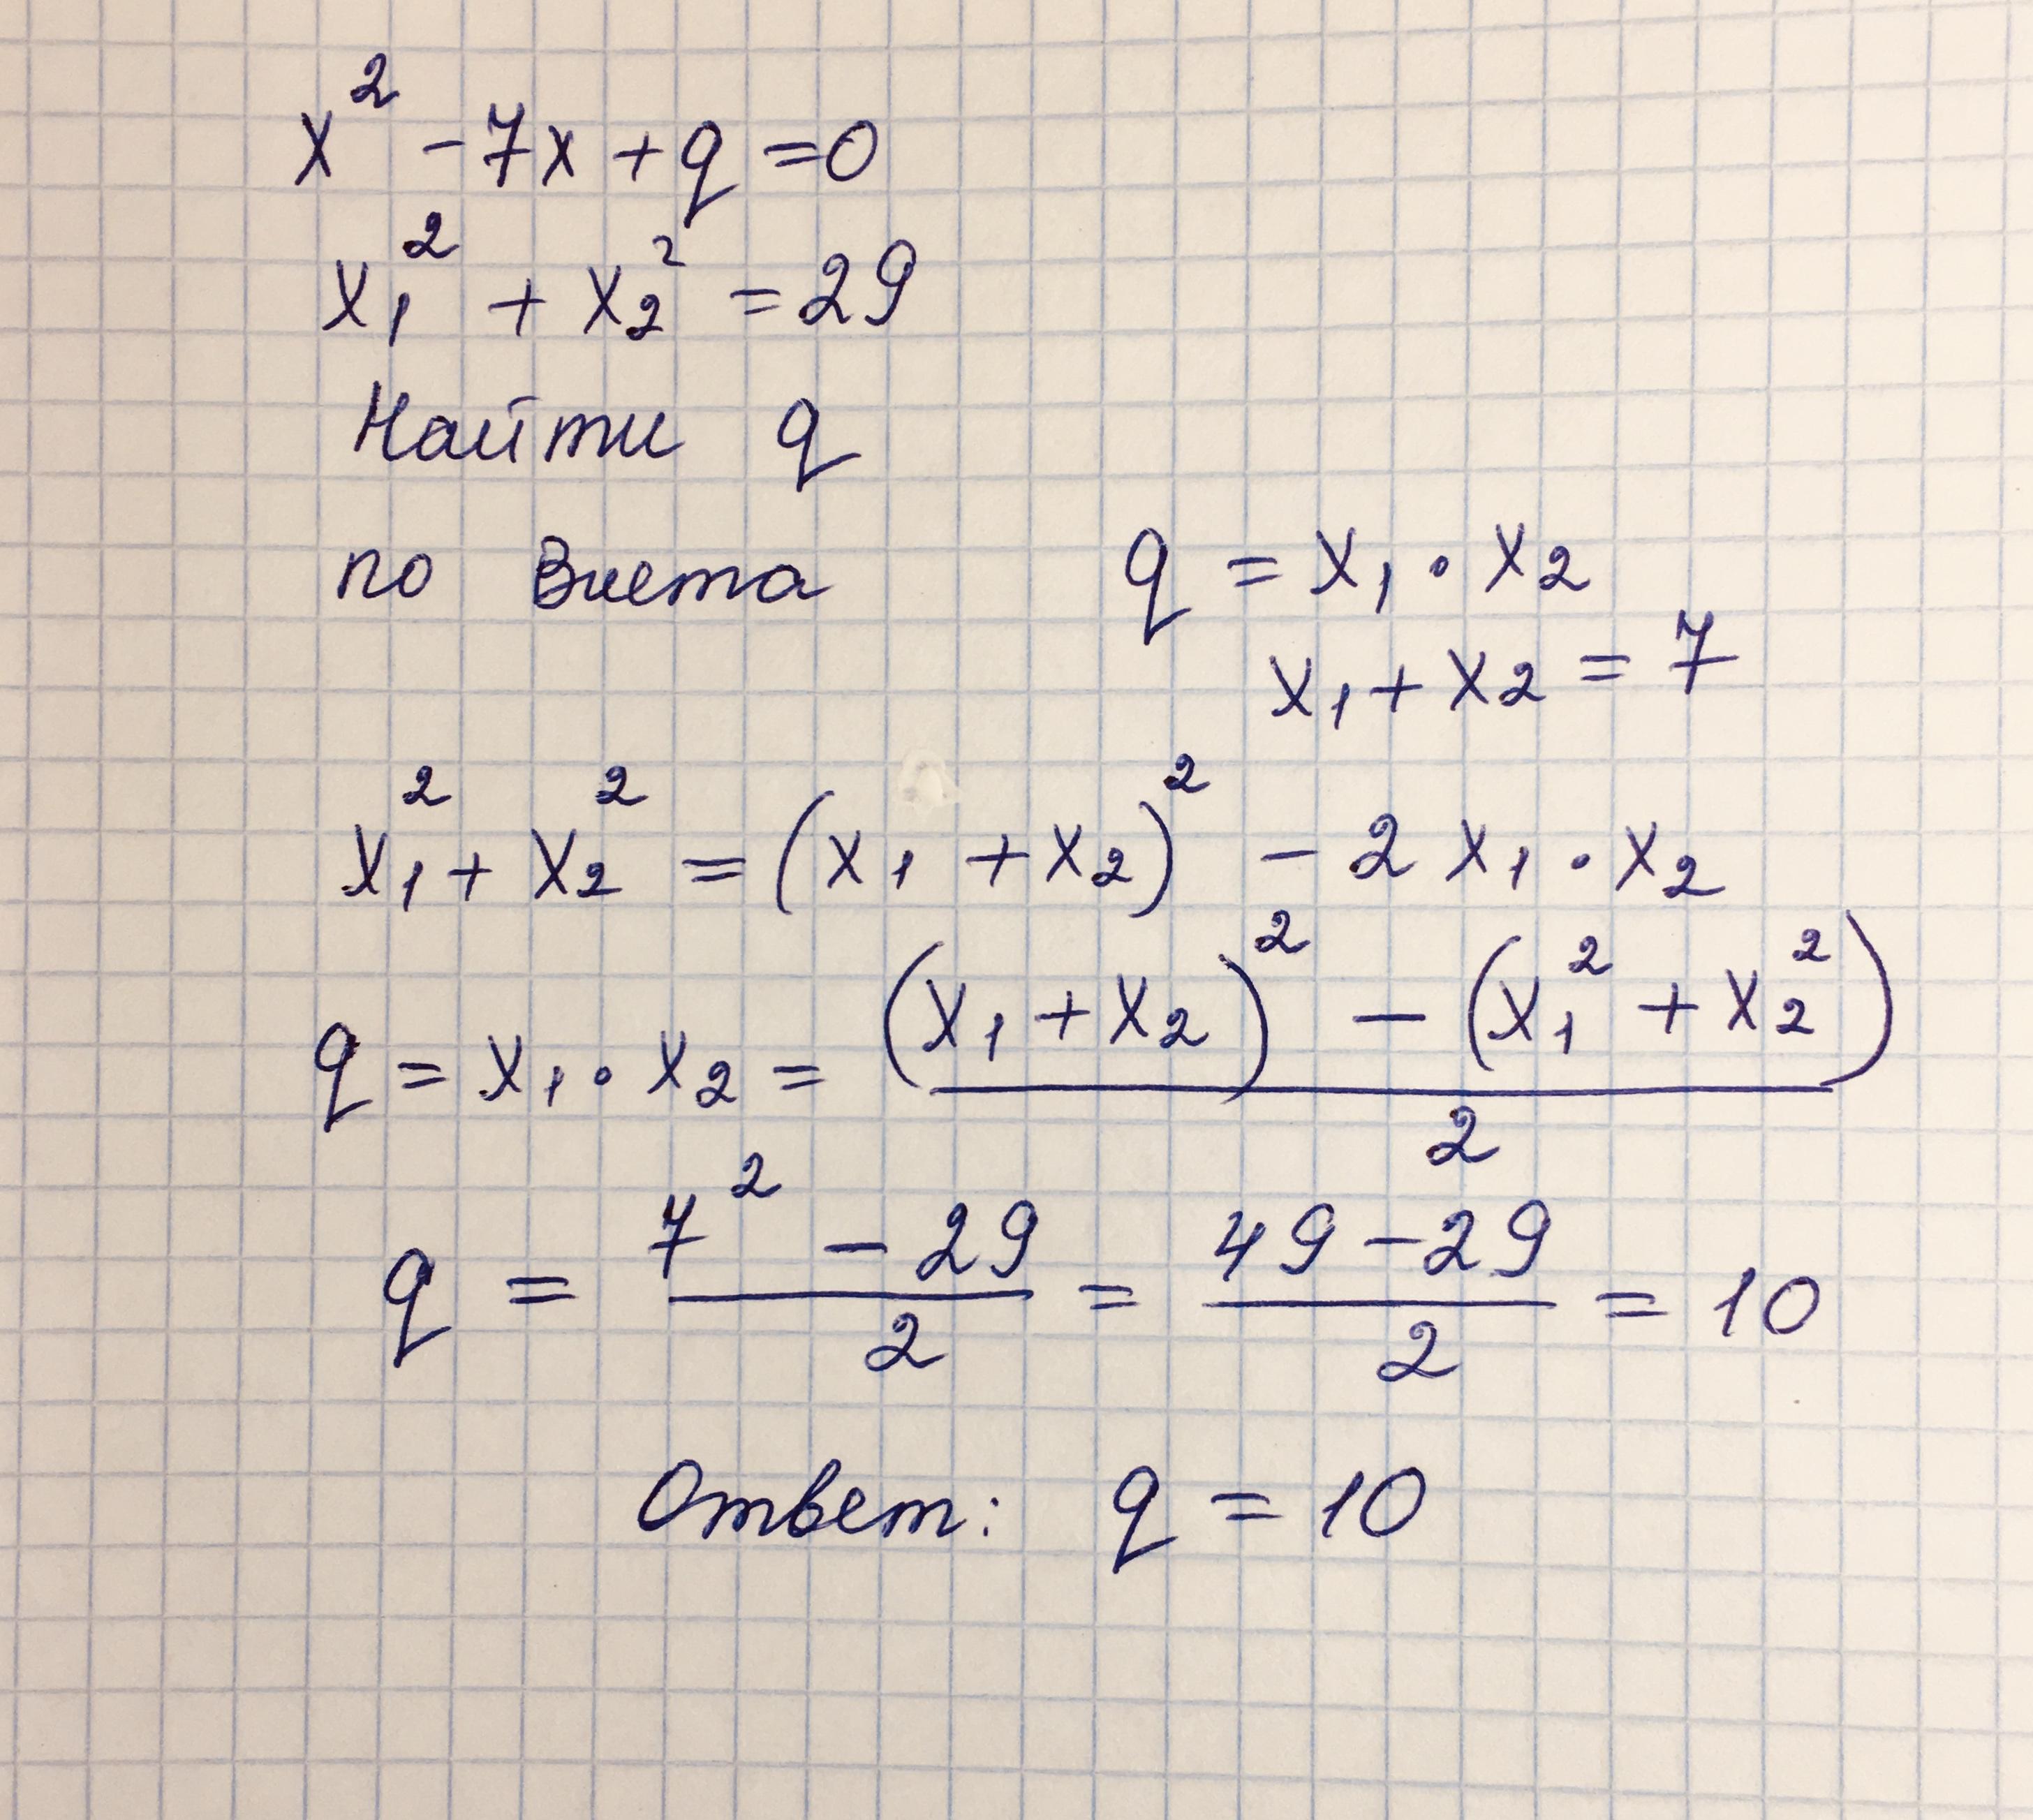 x² - 7x + q = 0
x₁² + x₂² = 29
Найти q
по Виета q = x₁ · x₂
x₁ + x₂ = 7
x₁² + x₂² = (x₁ + x₂)² - 2 x₁ · x₂
q = x₁ · x₂ = ((x₁ + x₂)² - (x₁² + x₂²)) / 2
q = (7² - 29) / 2 = (49 - 29) / 2 = 10
Ответ: q = 10